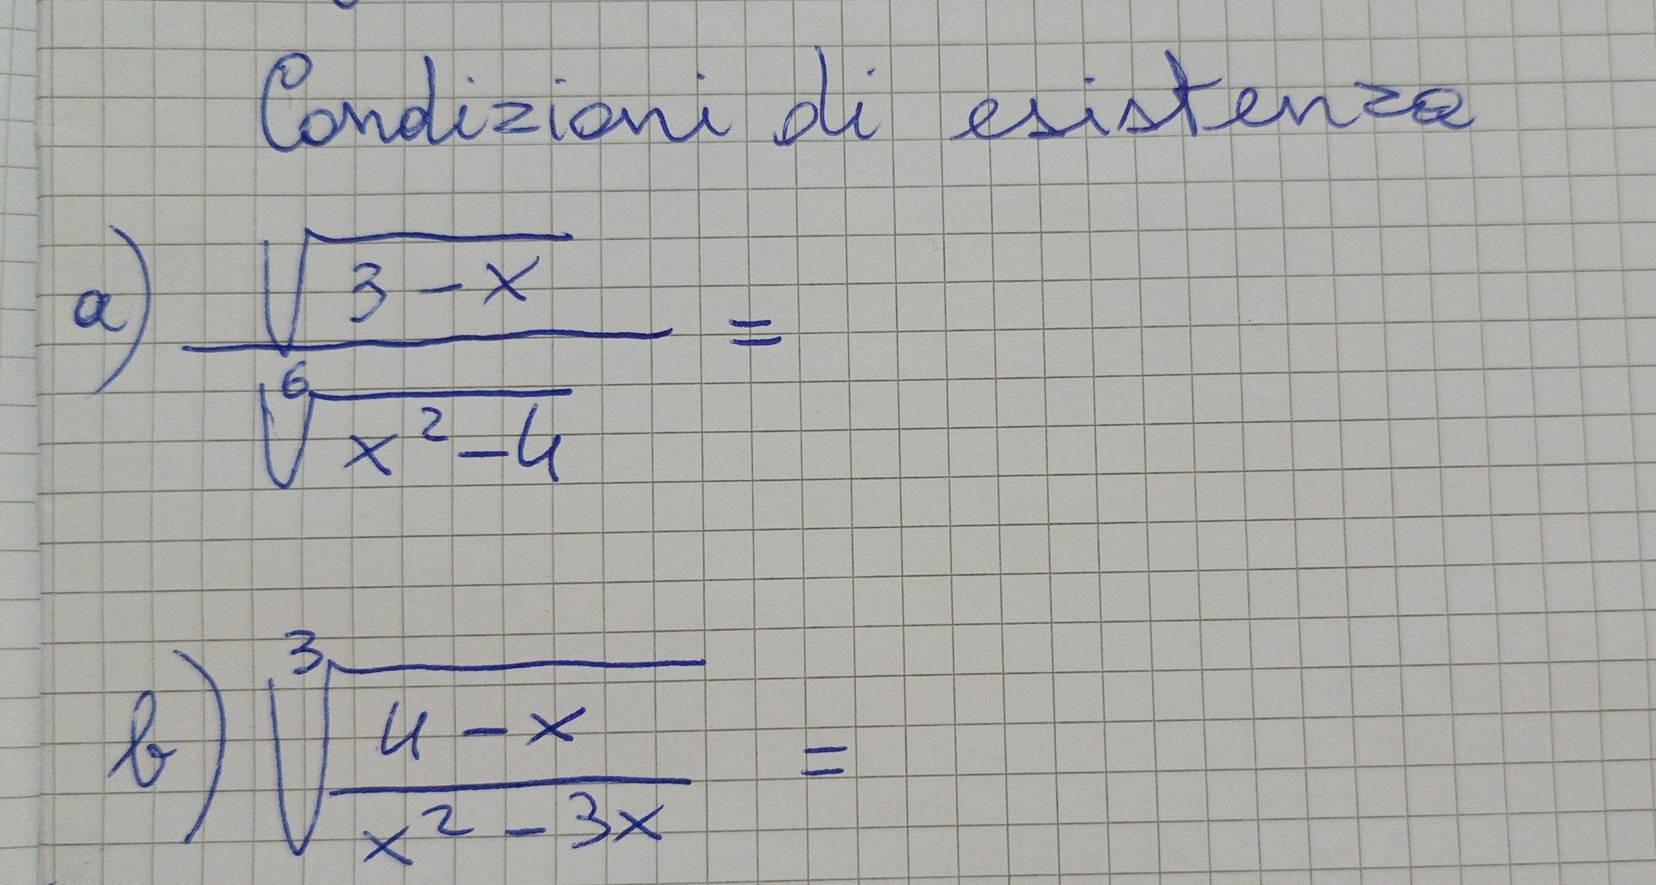 Condizioni di esistenza
a) √(3 - x) / ⁶√(x² - 4) =
b) ³√((4 - x) / (x² - 3x)) =